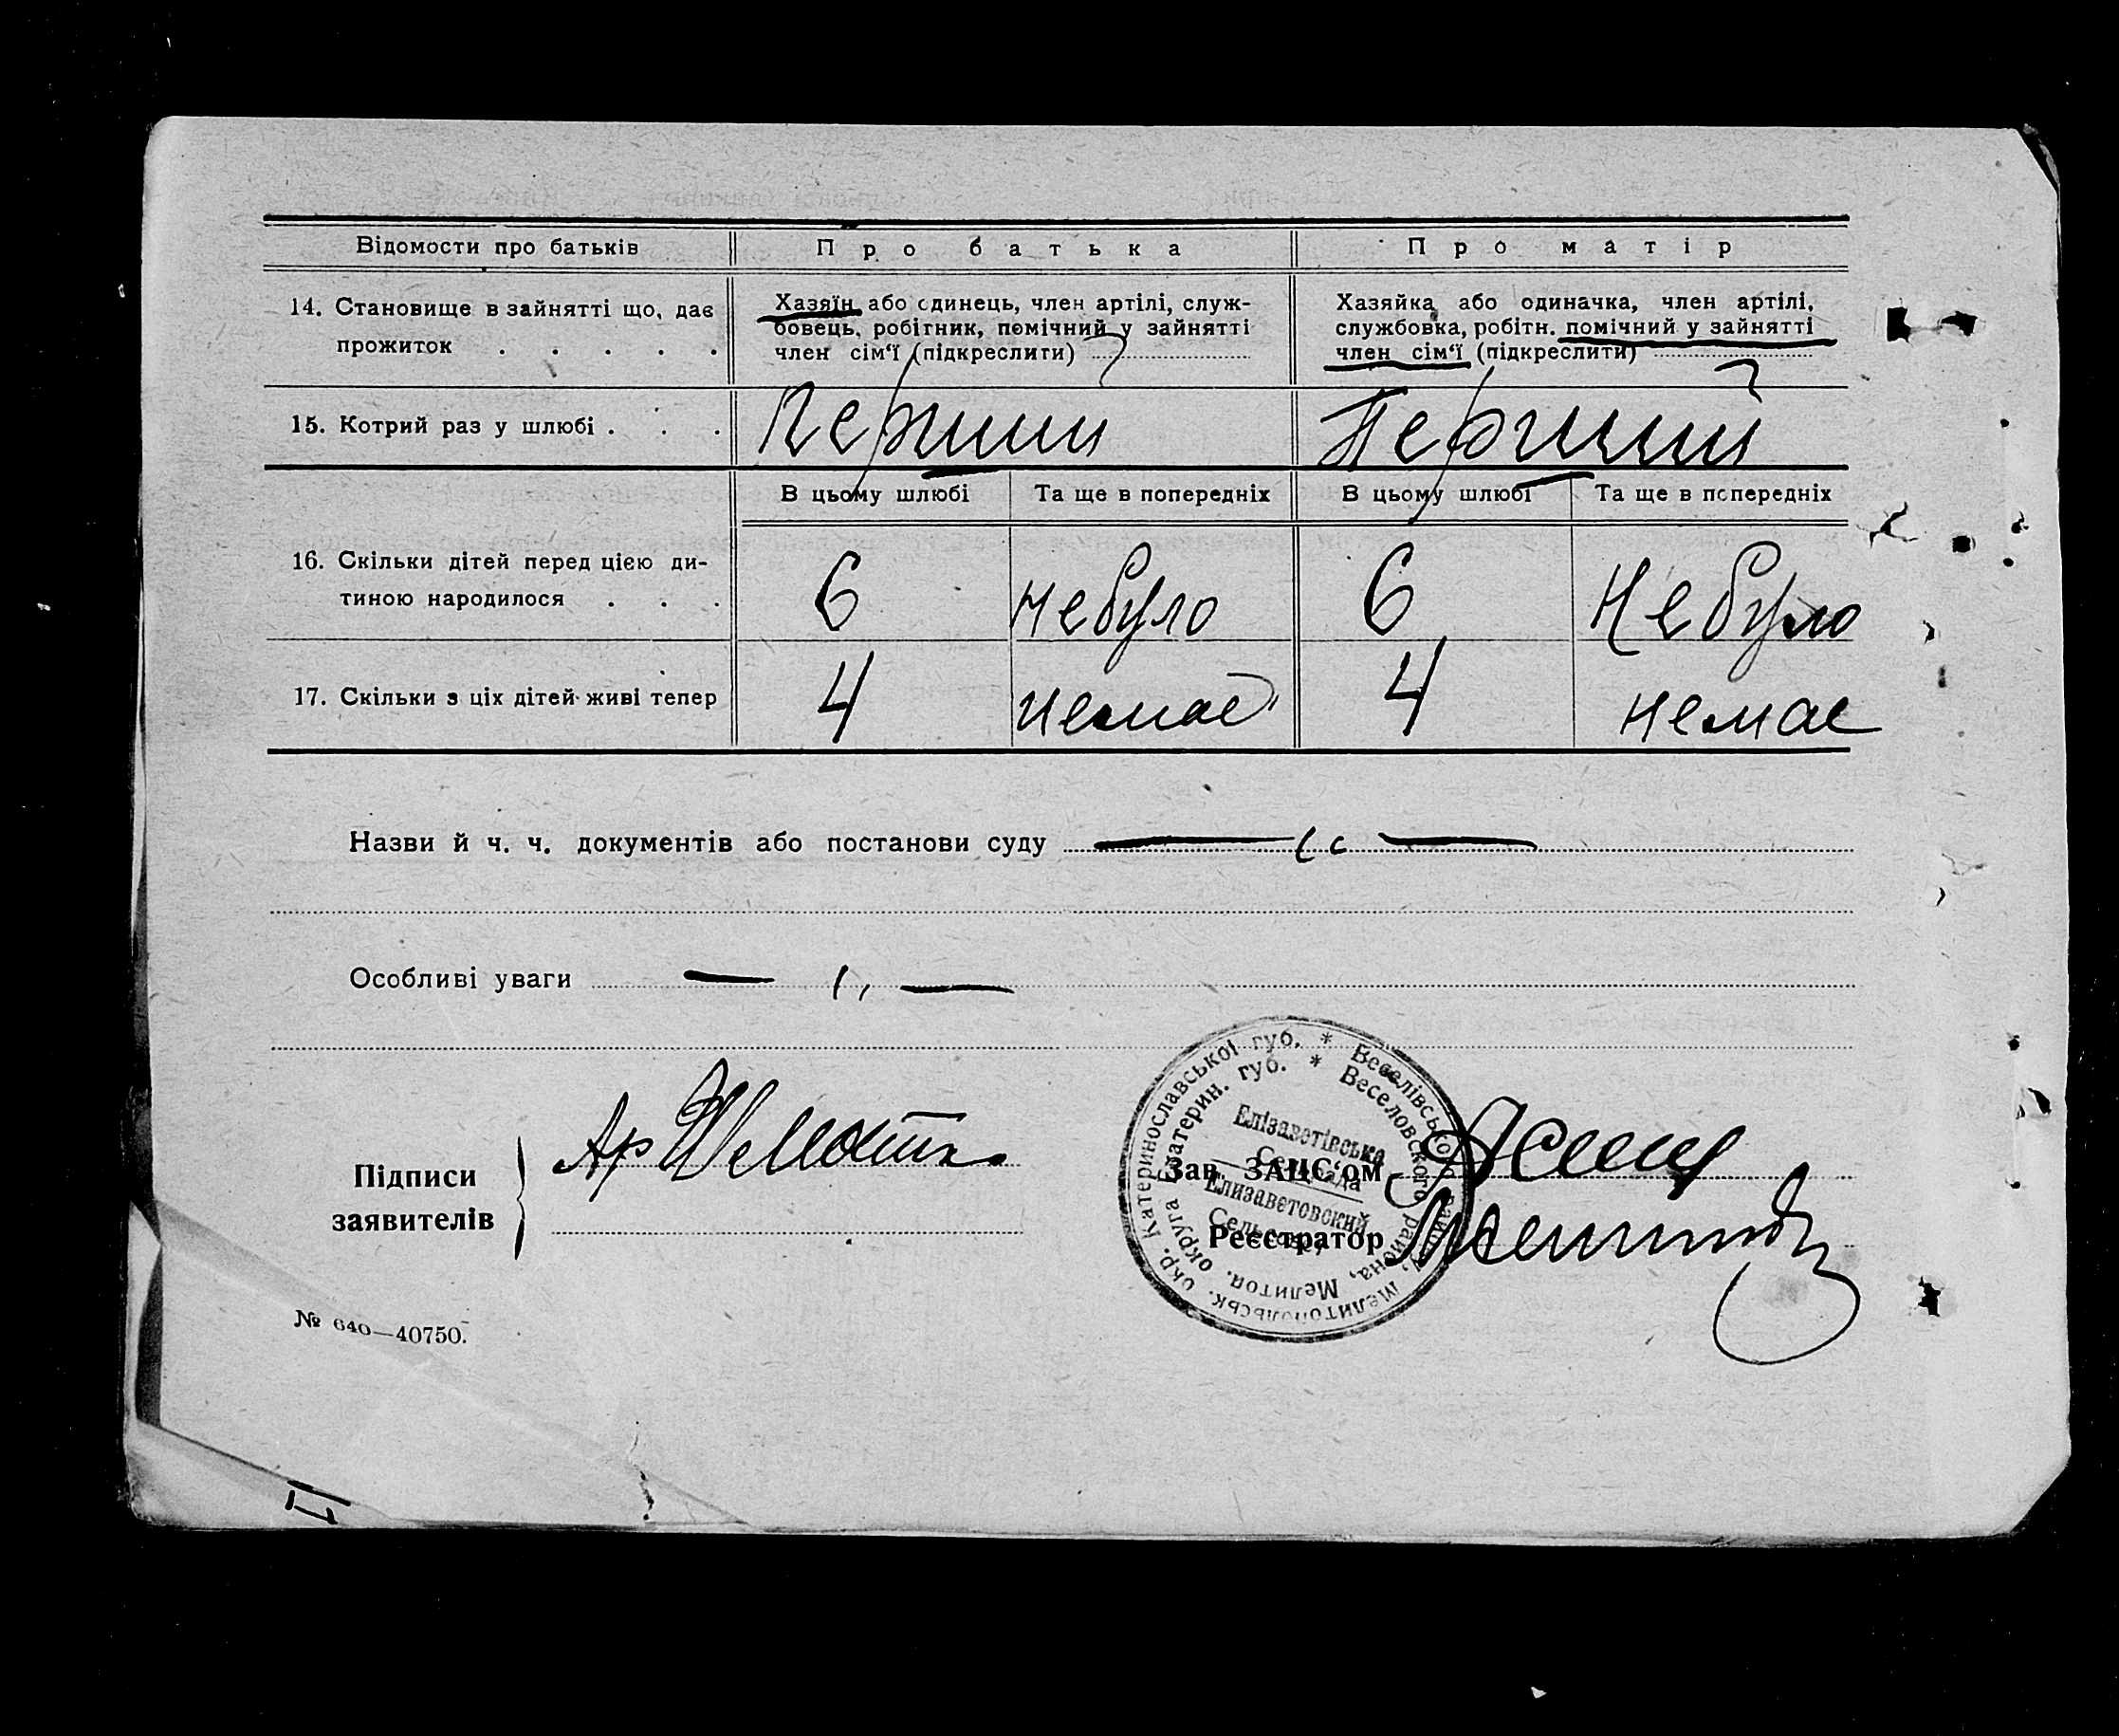 Відомости про батьків
Про батька
Про матір
14. Становище в зайнятті що, дає
прожиток . . . . .
Хазяїн або одинець, член артілі, служ-
бовець, робітник, помічний у зайнятті
член сім‘ї (підкреслити)
Хазяйка або одиначка, член артілі,
службовка, робітн. помічний у зайнятті
член сім‘ї (підкреслити)
15. Котрий раз у шлюбі . . .
Перший
Перший
В цьому шлюбі
Та ще в попередніх
В цьому шлюбі
Та ще в попередніх
16. Скільки дітей перед цією ди-
тиною народилося . . .
6
небуло
6
Небуло
17. Скільки з ціх дітей живі тепер
4
немає
4
немає
Назви й ч. ч. документів або постанови суду
Особливі уваги
Підписи
заявителів
Зав. ЗАЦС‘ом
Реєстратор
Веселівського району, Мелитопольськ. окр. Катеринославської губ. *
Веселовского района, Мелитоп. округа Екатерин. губ. *
Елізаветівська
Сельрада
Елизаветовский
Сельсовет
№ 640—40750.